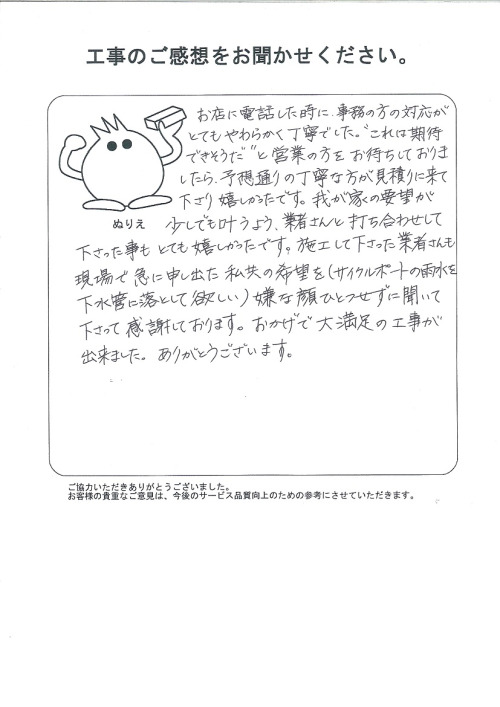 工事のご感想をお聞かせください。
お店に電話した時に、事務の方の対応が
とてもやわらかく丁寧でした。"これは期待
できそうだ"と営業の方をお待ちしておりま
したら、予想通りの丁寧な方が見積りに来て
下さり嬉しかったです。我が家の要望が
ぬりえ
少しでも叶うよう、業者さんと打ち合わせして
下さった事もとても嬉しかったです。施工して下さった業者さんも
現場で急に申し出た私共の希望を(サイクルポートの雨水を
下水管に落として欲しい)嫌な顔ひとつせずに聞いて
下さって感謝しております。おかげで大満足の工事が
出来ました。ありがとうございます。
ご協力いただきありがとうございました。
お客様の貴重なご意見は、今後のサービス品質向上のための参考にさせていただきます。